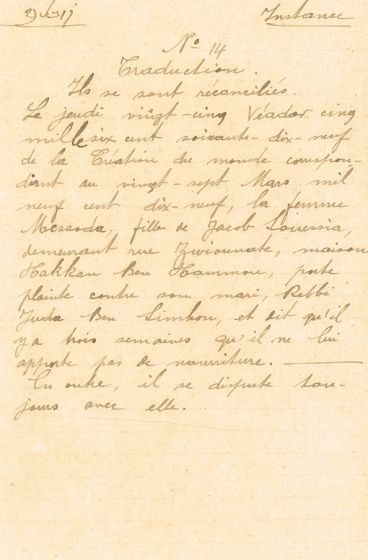 Instance
N° 14
Traduction.
Ils se sont réconciliés.
Le jeudi vingt-cinq Véadar cinq
mille six cent soixante-dix-neuf
de la Création du monde correspon-
dant au vingt-sept Mars, mil
neuf cent dix-neuf, la femme
Messoda, fille de Jacob
demeurant rue maison
Hakkan Ben Hammou, porte
plainte contre son mari, Rebbi
Juda Ben Simhon, et dit qu'il
y a trois semaines qu'il ne lui
apporte pas de nourriture.
En outre, il se dispute tou-
jours avec elle.